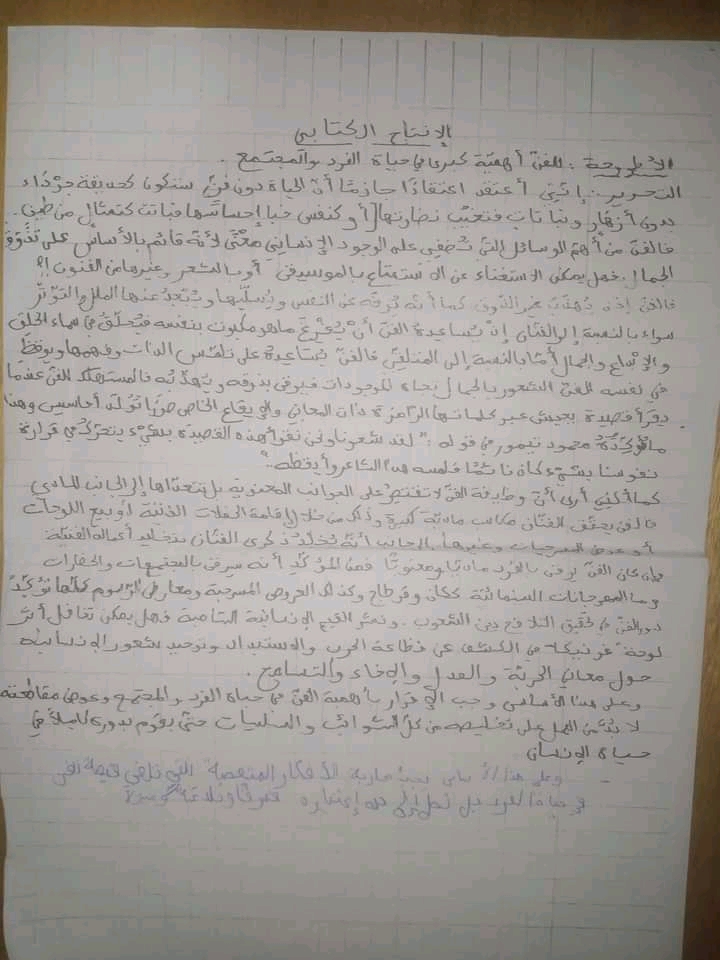 الإنتاج الكتابي
الأطروحة: للفنّ أهميّة كبرى في حياة الفرد والمجتمع.
التحرير: إنّني أعتقد اعتقادًا جازمًا أنّ الحياة دون فنّ ستكون كحديقة جرداء
بدون أزهار ونباتات فتغيب نضارتها أو كنفس خبا إحساسها فباتت كتمثال من طين.
فالفنّ من أهمّ الوسائل التي تضفي على الوجود الإنساني معنًى لأنّه قائم بالأساس على تذوّق
الجمال. فهل يمكن الاستغناء عن الاستمتاع بالموسيقى أو بالشعر وغيرها من الفنون!؟
فالفنّ إذن يهذّب الذوق كما أنّه يرفّه عن النفس ويسلّيها ويبعد عنها الملل والتوتّر
سواء بالنسبة إلى الفنّان إذ يساعده الفنّ أن يُفرغ ما هو مكبوت بنفسه فيحلّق في سماء الخلق
والإبداع والجمال أمّا بالنسبة إلى المتلقّي فالفنّ يساعده على تلمّس الذات وفهمها ويوقظ
في نفسه الشعور بالجمال تجاه الموجودات فيرقى بذوقه ويهذّبه فالمستهلك للفنّ عندما
يقرأ قصيدة يعيش عبر كلماتها الرّامزة ذات المعاني والإيقاع الخاص تولّد أحاسيس وهذا
ما يؤكّده محمود تيمور في قوله: "لقد شعرنا ونحن نقرأ هذه القصيدة بشيء يتحرّك في قرارة
نفوسنا بشيء كان نائمًا فلمسه هذا الشاعر وأيقظه".
كما أنّني أرى أنّ وظيفة الفنّ لا تقتصر على الجوانب المعنوية بل تتعدّاها إلى الجانب المادي
فالفن يحقّق للفنّان مكاسب ماديّة كبيرة وذلك من خلال إقامة الحفلات الفنيّة أو بيع اللوحات
أو عرض المسرحيات وغيرها بالإضافة أنّه يُخلّد ذكرى الفنّان بتخليد أعماله الفنيّة
فإن كان الفنّ يرقى بالفرد ماديًا ومعنويًا فمن المؤكّد أنّه سيرقى بالمجتمعات والحضارات
وما المهرجانات السنمائيّة ككان وقرطاج وكذلك العروض المسرحية ومعارض الرّسوم كلّها تؤكّد
دور الفنّ في تحقيق التلاقح بين الشعوب. ونشر القيم الإنسانيّة السّامية فهل يمكن تغافل أثر
لوحة "غرنيكا" في الكشف عن فظاعة الحرب والاستبداد وتوحيد شعور الإنسانية
حول معاني الحريّة والعدل والإخاء والتسامح.
وعلى هذا الأساس وجب الإقرار بأهمية الفنّ في حياة الفرد والمجتمع وعوض مقاطعته
لا بدّ من العمل على تخليصه من كلّ الشوائب والسلبيات حتّى يقوم بدوره كاملا في
حياة الإنسان
- وعلى هذا الأساس يجب محاربة الأفكار المتعصبة التي تلغي قيمة الفن
في حياة الفرد بل تصل إلى حد إعتباره